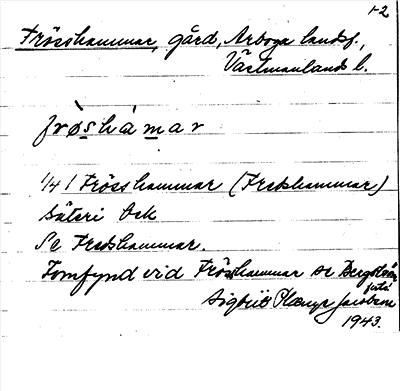 1-2
Frösshammar, gård, Arboga landsf.,
Västmanlands l.
frø̀s̠hàm̠ar
1/4 1 Frösshammar (Fredshammar)
Säteri Ock
Se Fredshammar.
Fornfynd vid Frösshammar se Bergslöv
Jacobson
1943.